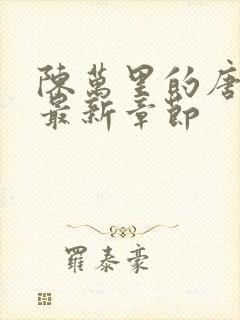 陳萬里的唐
最新章節
羅泰豪